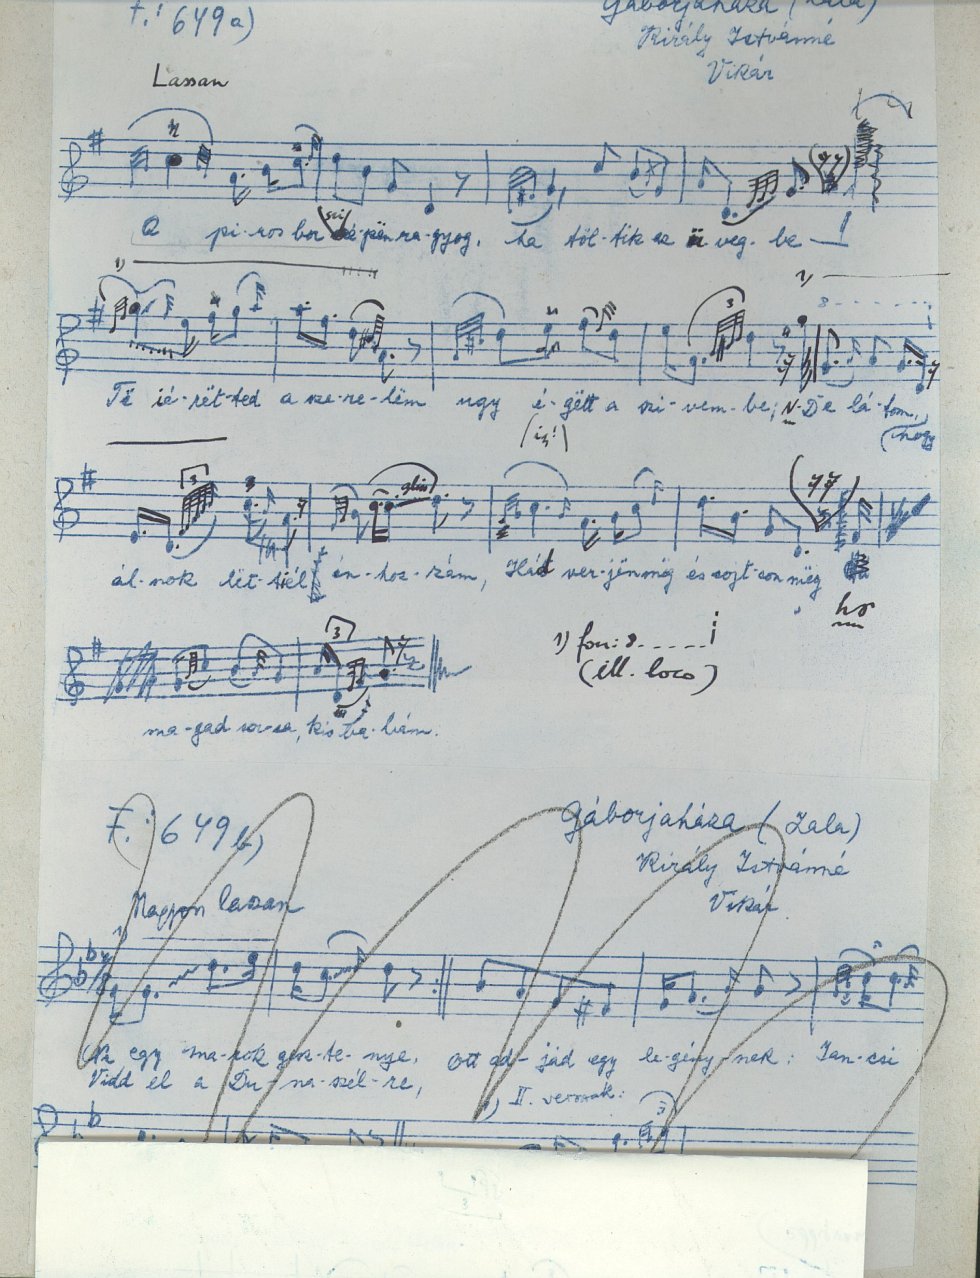 F.: 649a)
Gáborjaháza (Zala)
Király Istvánné
Vikár
Lassan
A pi-ros bor szé-pën ra-gyog, ha töl-tik az ü veg-be
1)
2)
Të ié-rët-ted a sze-re-lëm ugy é-gëtt a szi-vem-be; N-De lá-tom,
(iz!)
(hogy
3
8
ál-nok lët-tél én-hoz-zám, Hát ver-jën mëg és sojt-son mëg a
glis
ho
1) fon: 8
(ill. loco)
ma-gad sor-sa, kis ba-bám.
F.: 649 b)
Gáborjaháza (Zala)
Király Istvánné
Vikár
Nagyon lassan
1)
Na egy ma-rok gesz-te-nye, Ott ad-jád egy le-gény-nek: Jan-csi
Vidd el a Du-na-szél-re,
1) II. versszak:
3